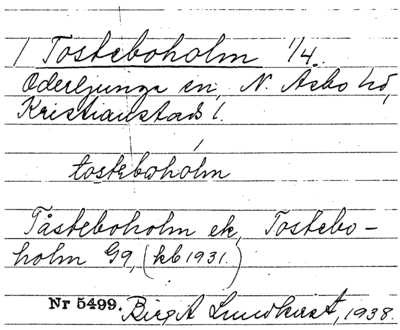 1 Tosteboholm 1/4.
Oderljunga sn, N. Åsbo hd,
Kristianstads l.
tosteboholm
Tåsteboholm ek, Tostebo-
holm G9, (kb 1931.)
Nr 5499. Birgit Lundkvist, 1938.